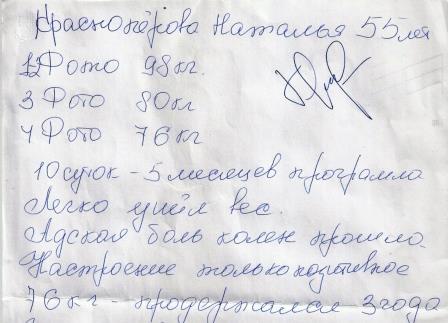 Краснопёрова Наталья 55 лет
1,2 Фото 98 кг.
3 Фото 80 кг
4 Фото 76 кг
10 суток - 5 месяцев программа
Легко ушёл вес.
Адская боль колен прошла.
Настроение только позитивное
76 кг - продержался 3 года